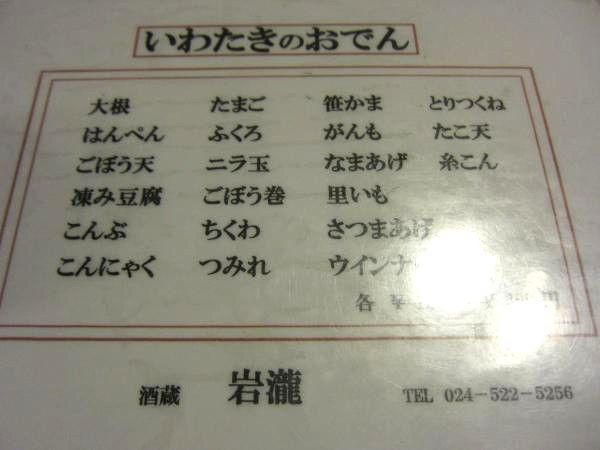 いわたきのおでん
大根 たまご 笹かま とりつくね
はんぺん ふくろ がんも たこ天
ごぼう天 ニラ玉 なまあげ 糸こん
凍み豆腐 ごぼう巻 里いも
こんぶ ちくわ さつまあげ
こんにゃく つみれ ウインナー
各
酒蔵 岩瀧 TEL 024-522-5256